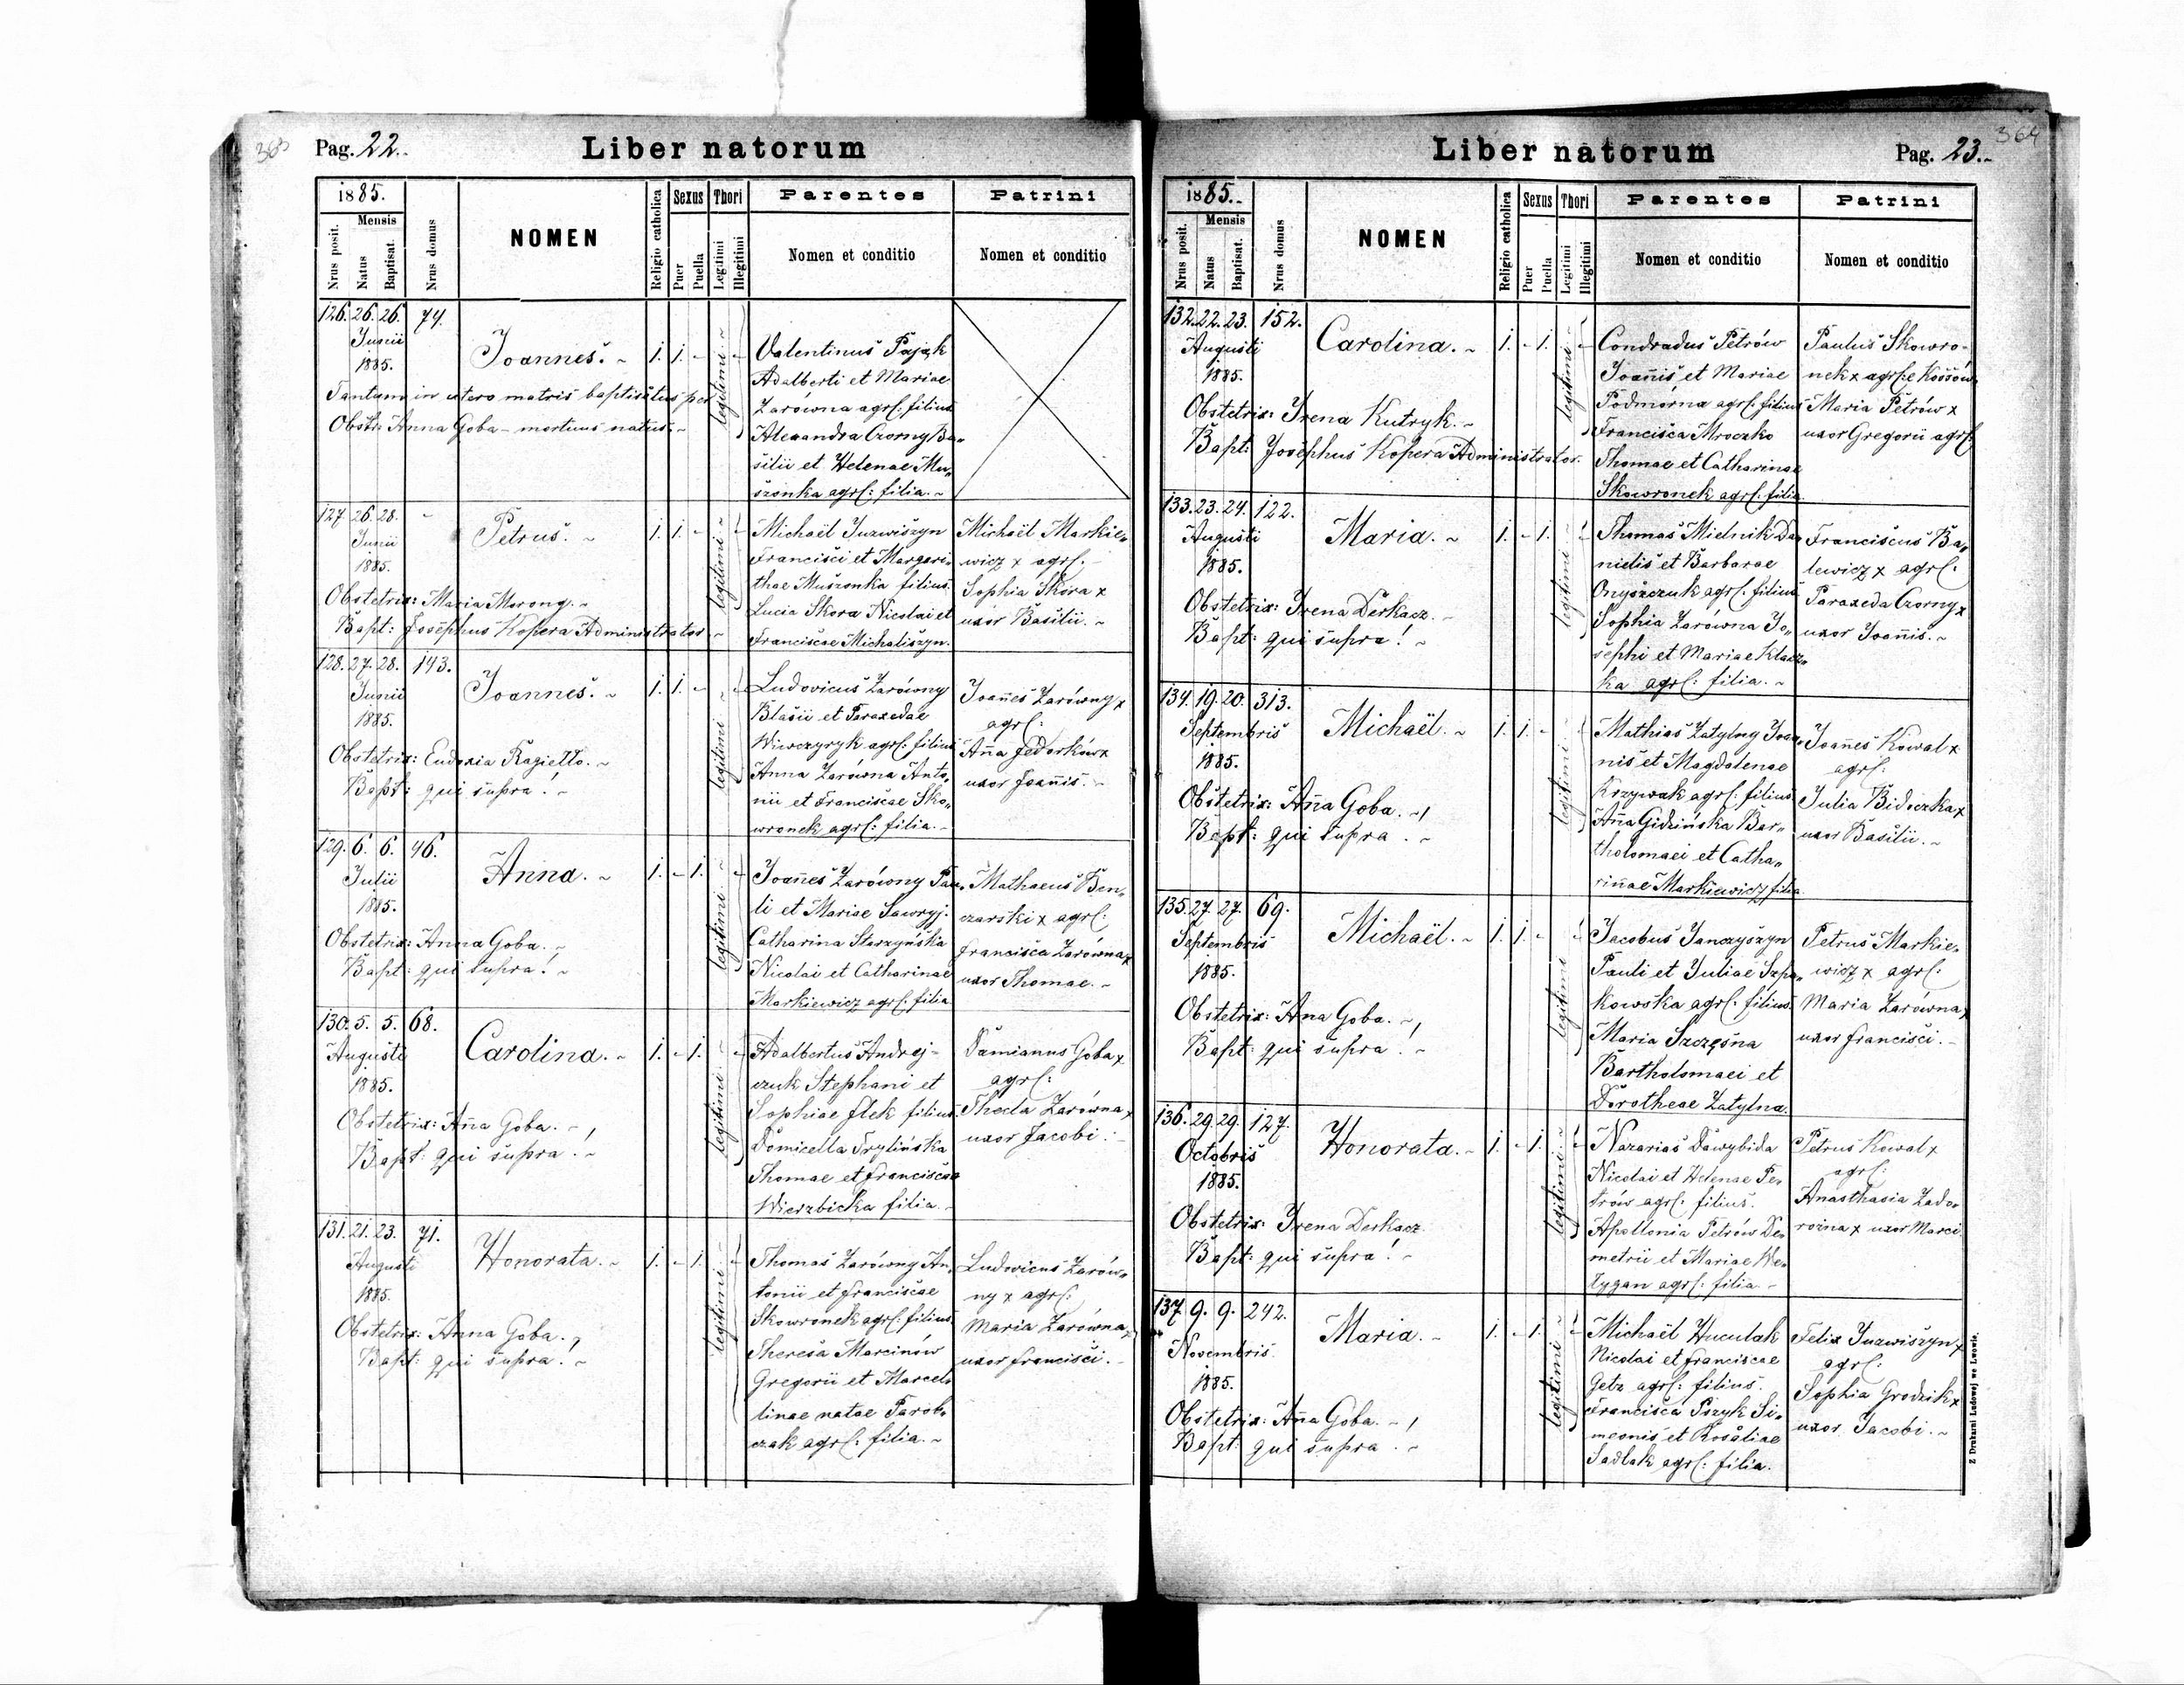 Pag. 22.
Liber natorum
1885.
Nrus posit.
Mensis
Natus
Baptisat.
Nrus domus
NOMEN
Religio catholica
Sexus
Puer
Puella
Thori
Legitimi
Illegitimi
Parentes
Nomen et conditio
Patrini
Nomen et conditio
126. 26. 26. 74.
Junii
1885.
Joannes. 1. 1. -
legitimi
Tantum in utero matris baptisatus per
Obstr: Anna Goba - mortuus natus.
Valentinus Pająk
Adalberti et Mariae
Zarówna agrl: filius
Alexandra Czorny Ba„
silii et Helenae Mu„
szonka agrl: filia.
127. 26. 28. -
Junii
1885.
Petrus. 1. 1. -
legitimi
Obstetrix: Maria Morong.
Bapt: Josephus Kopera Administrator
Michaël Juzwiszyn
Francisci et Margari„
thae Muszonka filius.
Lucia Skora Nicolai et
Franciscae Michaliszyn.
Michaël Markie„
wicz x agrl:
Sophia Skora x
uxor Basilii.
128. 27. 28. 143.
Junii
1885.
Joannes. 1. 1. -
legitimi
Obstetrix: Eudoxia Ragiełło.
Bapt: qui supra!
Ludovicus Zarówny
Blasii et Paraxedae
Wiwczyryk agrl: filius
Anna Zarówna Anto„
nii et Franciscae Sko„
wronek agrl: filia.
Joañes Zarówny x
agrl:
Aña Fedorków x
uxor Joañis.
129. 6. 6. 46.
Julii
1885.
Anna. 1. - 1.
legitimi
Obstetrix: Anna Goba.
Bapt: qui supra!
Joañes Zarówny Pau„
li et Mariae Sawryj.
Catharina Starzyńska
Nicolai et Catharinae
Markiewicz agrl: filia
Mathaeus Ben„
czarski x agrl:
Francisca Zarówna x
uxor Thomae.
130. 5. 5. 68.
Augusti
1885.
Carolina. 1. - 1.
legitimi
Obstetrix: Aña Goba.
Bapt: qui supra!
Adalbertus Andrej-
czuk Stephani et
Sophiae Flek filius.
Domicella Trylińska
Thomae et Franciscae
Wierzbicka filia.
Damianus Goba x
agrl:
Thecla Zarówna x
uxor Jacobi.
131. 21. 23. 71.
Augusti
1885.
Honorata. 1. - 1.
legitimi
Obstetrix: Anna Goba.
Bapt: qui supra!
Thomas Zarówny An„
tonii et Franciscae
Skowronek agrl: filius
Theresa Marcinów
Gregorii et Marcel„
linae natae Parob„
czak agrl: filia.
Ludovicus Zarów„
ny x agrl:
Maria Zarówna x
uxor Francisci.
Liber natorum
Pag. 23.
364
1885.
Nrus posit.
Mensis
Natus
Baptisat.
Nrus domus
NOMEN
Religio catholica
Sexus
Puer
Puella
Thori
Legitimi
Illegitimi
Parentes
Nomen et conditio
Patrini
Nomen et conditio
132. 22. 23. 152.
Augusti
1885.
Carolina. 1. - 1.
legitimi
Obstetrix: Irena Kutryk.
Bapt: Josephus Kopera Administrator.
Condradus Petrów
Joañis et Mariae
Podmorna agrl: filius
Francisca Mroczko
Thomae et Catharinae
Skowronek agrl: filia.
Paulus Skowro-
nek x agrl: e Kossów.
Maria Petrów x
uxor Gregorii agrl:
133. 23. 24. 122.
Augusti
1885.
Maria. 1. - 1.
legitimi
Obstetrix: Irena Derkacz.
Bapt: qui supra!
Thomas Mielnik Da„
nielis et Barbarae
Onyszczuk agrl: filius
Sophia Zarówna Jo„
sephi et Mariae Klacz„
ka agrl: filia.
Franciscus Ba„
lewicz x agrl:
Paraxeda Czorny x
uxor Joañis.
134. 19. 20. 313.
Septembris
1885.
Michaël. 1. 1. -
legitimi
Obstetrix: Aña Goba.
Bapt: qui supra.
Mathias Zatylny Joan„
nis et Magdalenae
Krzywak agrl: filius
Aña Gidzińska Bar„
tholomaei et Catha„
riñae Markiewicz filia.
Joañes Kowal x
agrl:
Julia Bidoczka x
uxor Basilii.
135. 27. 27. 69.
Septembris
1885.
Michaël. 1. 1. -
legitimi
Obstetrix: Ana Goba.
Bapt: qui supra!
Jacobus Janczyszyn
Pauli et Juliae Szpa„
kowska agrl: filius
Maria Szczęsna
Bartholomaei et
Dorotheae Zatylna.
Petrus Markie„
wicz x agrl:
Maria Zarówna x
uxor Francisci.
136. 29. 29. 127.
Octobris
1885.
Honorata. 1. - 1.
legitimi
Obstetrix: Irena Derkacz.
Bapt: qui supra!
Nazarias Dawybida
Nicolai et Helenae Pe„
trów agrl: filius.
Apollonia Petrów De„
metrii et Mariae We„
łygan agrl: filia
Petrus Kowal x
agrl:
Anasthasia Zado„
rożna x uxor Marci.
137. 9. 9. 242.
Novembris
1885.
Maria. 1. - 1.
legitimi
Obstetrix: Aña Goba.
Bapt: qui supra.
Michaël Huculak
Nicolai et Franciscae
Getz agrl: filius.
Francisca Pszyk Si„
meonis et Rosaliae
Sadlak agrl: filia.
Felix Juzwiszyn x
agrl:
Sophia Grodzik x
uxor Jacobi.
Z Drukarni Ludowej we Lwowie.